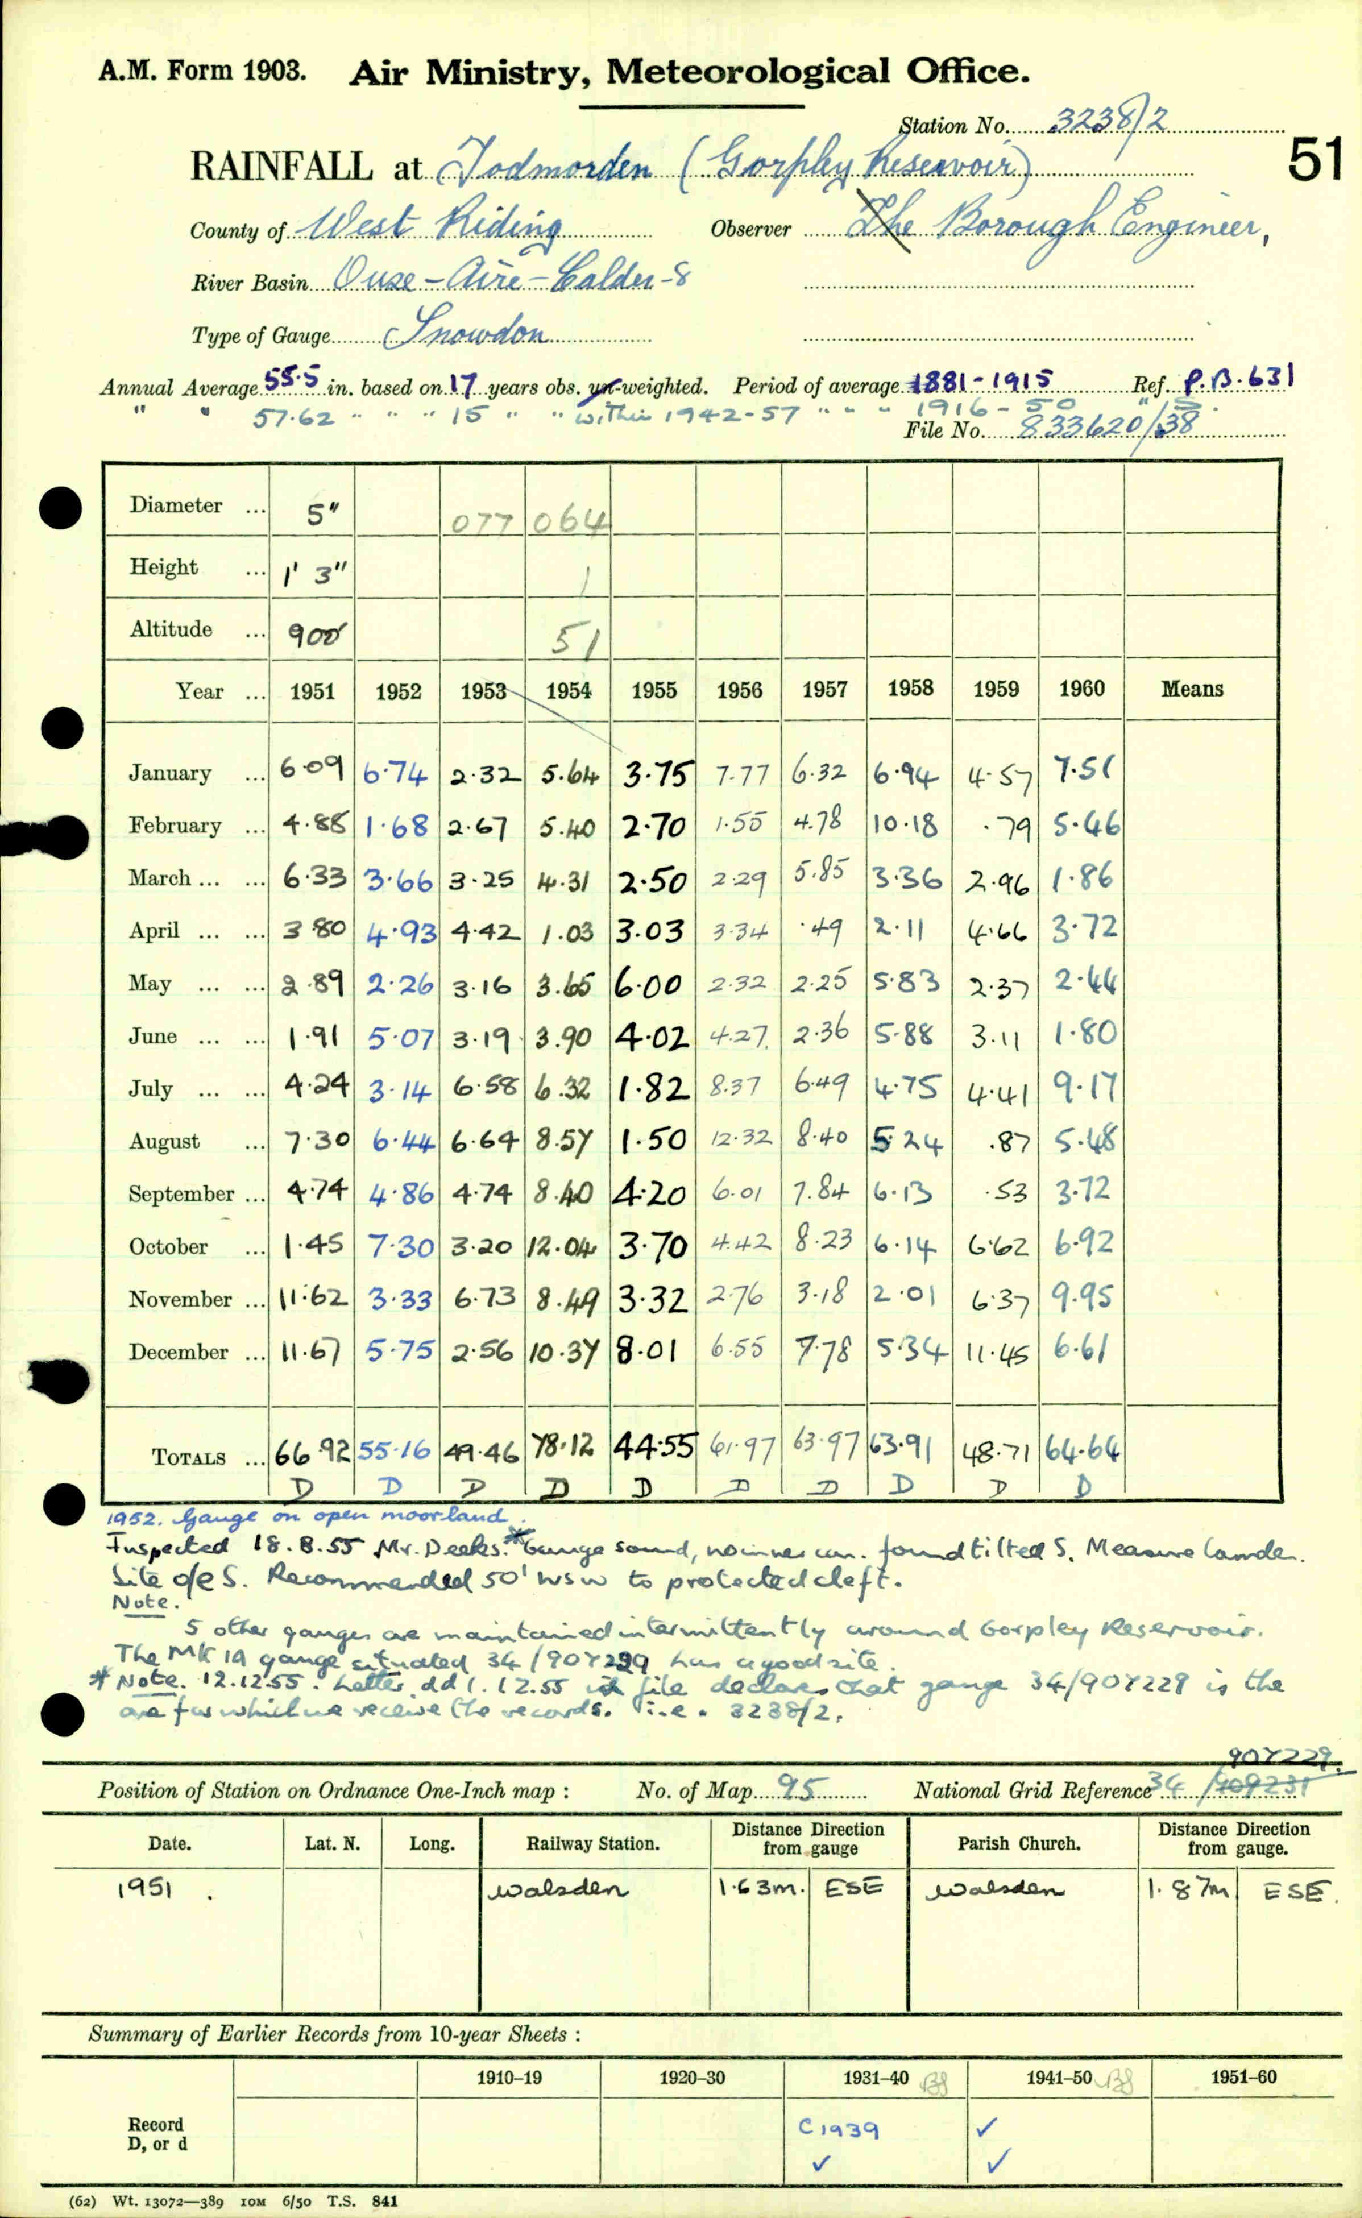 A.M. Form 1903. Air Ministry, Meteorological Office.
Station No. 3238/2
51
RAINFALL at Todmorden (Gorpley Reservoir)
County of West Riding Observer The Borough Engineer,
River Basin Ouse-Aire-Calder-8
Type of Gauge Snowdon
Annual Average 55.5 in. based on 17 years obs. un-weighted. Period of average 1881-1915 Ref. P.B. 631
" " 57.62 " " " 15 " " within 1942-57 " " " 1916-50 "
File No. 833620/38
Diameter ... 5" 077 064
Height ... 1' 3" 1
Altitude ... 900' 51
Year ... 1951 1952 1953 1954 1955 1956 1957 1958 1959 1960 Means
January ... 6.09 6.74 2.32 5.64 3.75 7.77 6.32 6.94 4.57 7.51
February ... 4.88 1.68 2.67 5.40 2.70 1.55 4.78 10.18 .79 5.46
March ... ... 6.33 3.66 3.25 4.31 2.50 2.29 5.85 3.36 2.96 1.86
April ... ... 3.80 4.93 4.42 1.03 3.03 3.34 .49 2.11 4.66 3.72
May ... ... 2.89 2.26 3.16 3.65 6.00 2.32 2.25 5.83 2.37 2.44
June ... ... 1.91 5.07 3.19 3.90 4.02 4.27 2.36 5.88 3.11 1.80
July ... ... 4.24 3.14 6.58 6.32 1.82 8.37 6.49 4.75 4.41 9.17
August ... 7.30 6.44 6.64 8.57 1.50 12.32 8.40 5.24 .87 5.48
September ... 4.74 4.86 4.74 8.40 4.20 6.01 7.84 6.13 .53 3.72
October ... 1.45 7.30 3.20 12.04 3.70 4.42 8.23 6.14 6.62 6.92
November ... 11.62 3.33 6.73 8.49 3.32 2.76 3.18 2.01 6.37 9.95
December ... 11.67 5.75 2.56 10.37 8.01 6.55 7.78 5.34 11.45 6.61
TOTALS ... 66.92 55.16 49.46 78.12 44.55 61.97 63.97 63.91 48.71 64.64
D D D D D D D D D D
1952. Gauge on open moorland.
Inspected 18.8.55 Mr. Deeks.* Gauge sound, no inner can. found tilted S. Measure Camden.
Site o/e S. Recommended 50' WSW to protected cleft.
Note.
5 other gauges are maintained intermittently around Gorpley Reservoir.
The MK 1A gauge situated 34/907229 has a good site.
* Note. 12.12.55. Letter dd 1.12.55 in file declares that gauge 34/907229 is the
one for which we receive the records. i.e. 3238/2.
907229.
Position of Station on Ordnance One-Inch map : No. of Map 95 National Grid Reference 34/909231
Date. Lat. N. Long. Railway Station. Distance Direction from gauge Parish Church. Distance Direction from gauge.
1951 . Walsden 1.63m. ESE Walsden 1.87m ESE.
Summary of Earlier Records from 10-year Sheets :
1910–19 1920–30 1931–40 1941–50 1951–60
Record
D, or d
C1939 ✓
✓ ✓
(62) Wt. 13072—389 10M 6/50 T.S. 841